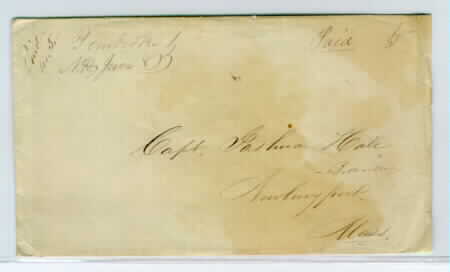 Pembroke
N.H. June
Paid
Capt. Joshua Hale
Newburyport
Mass.